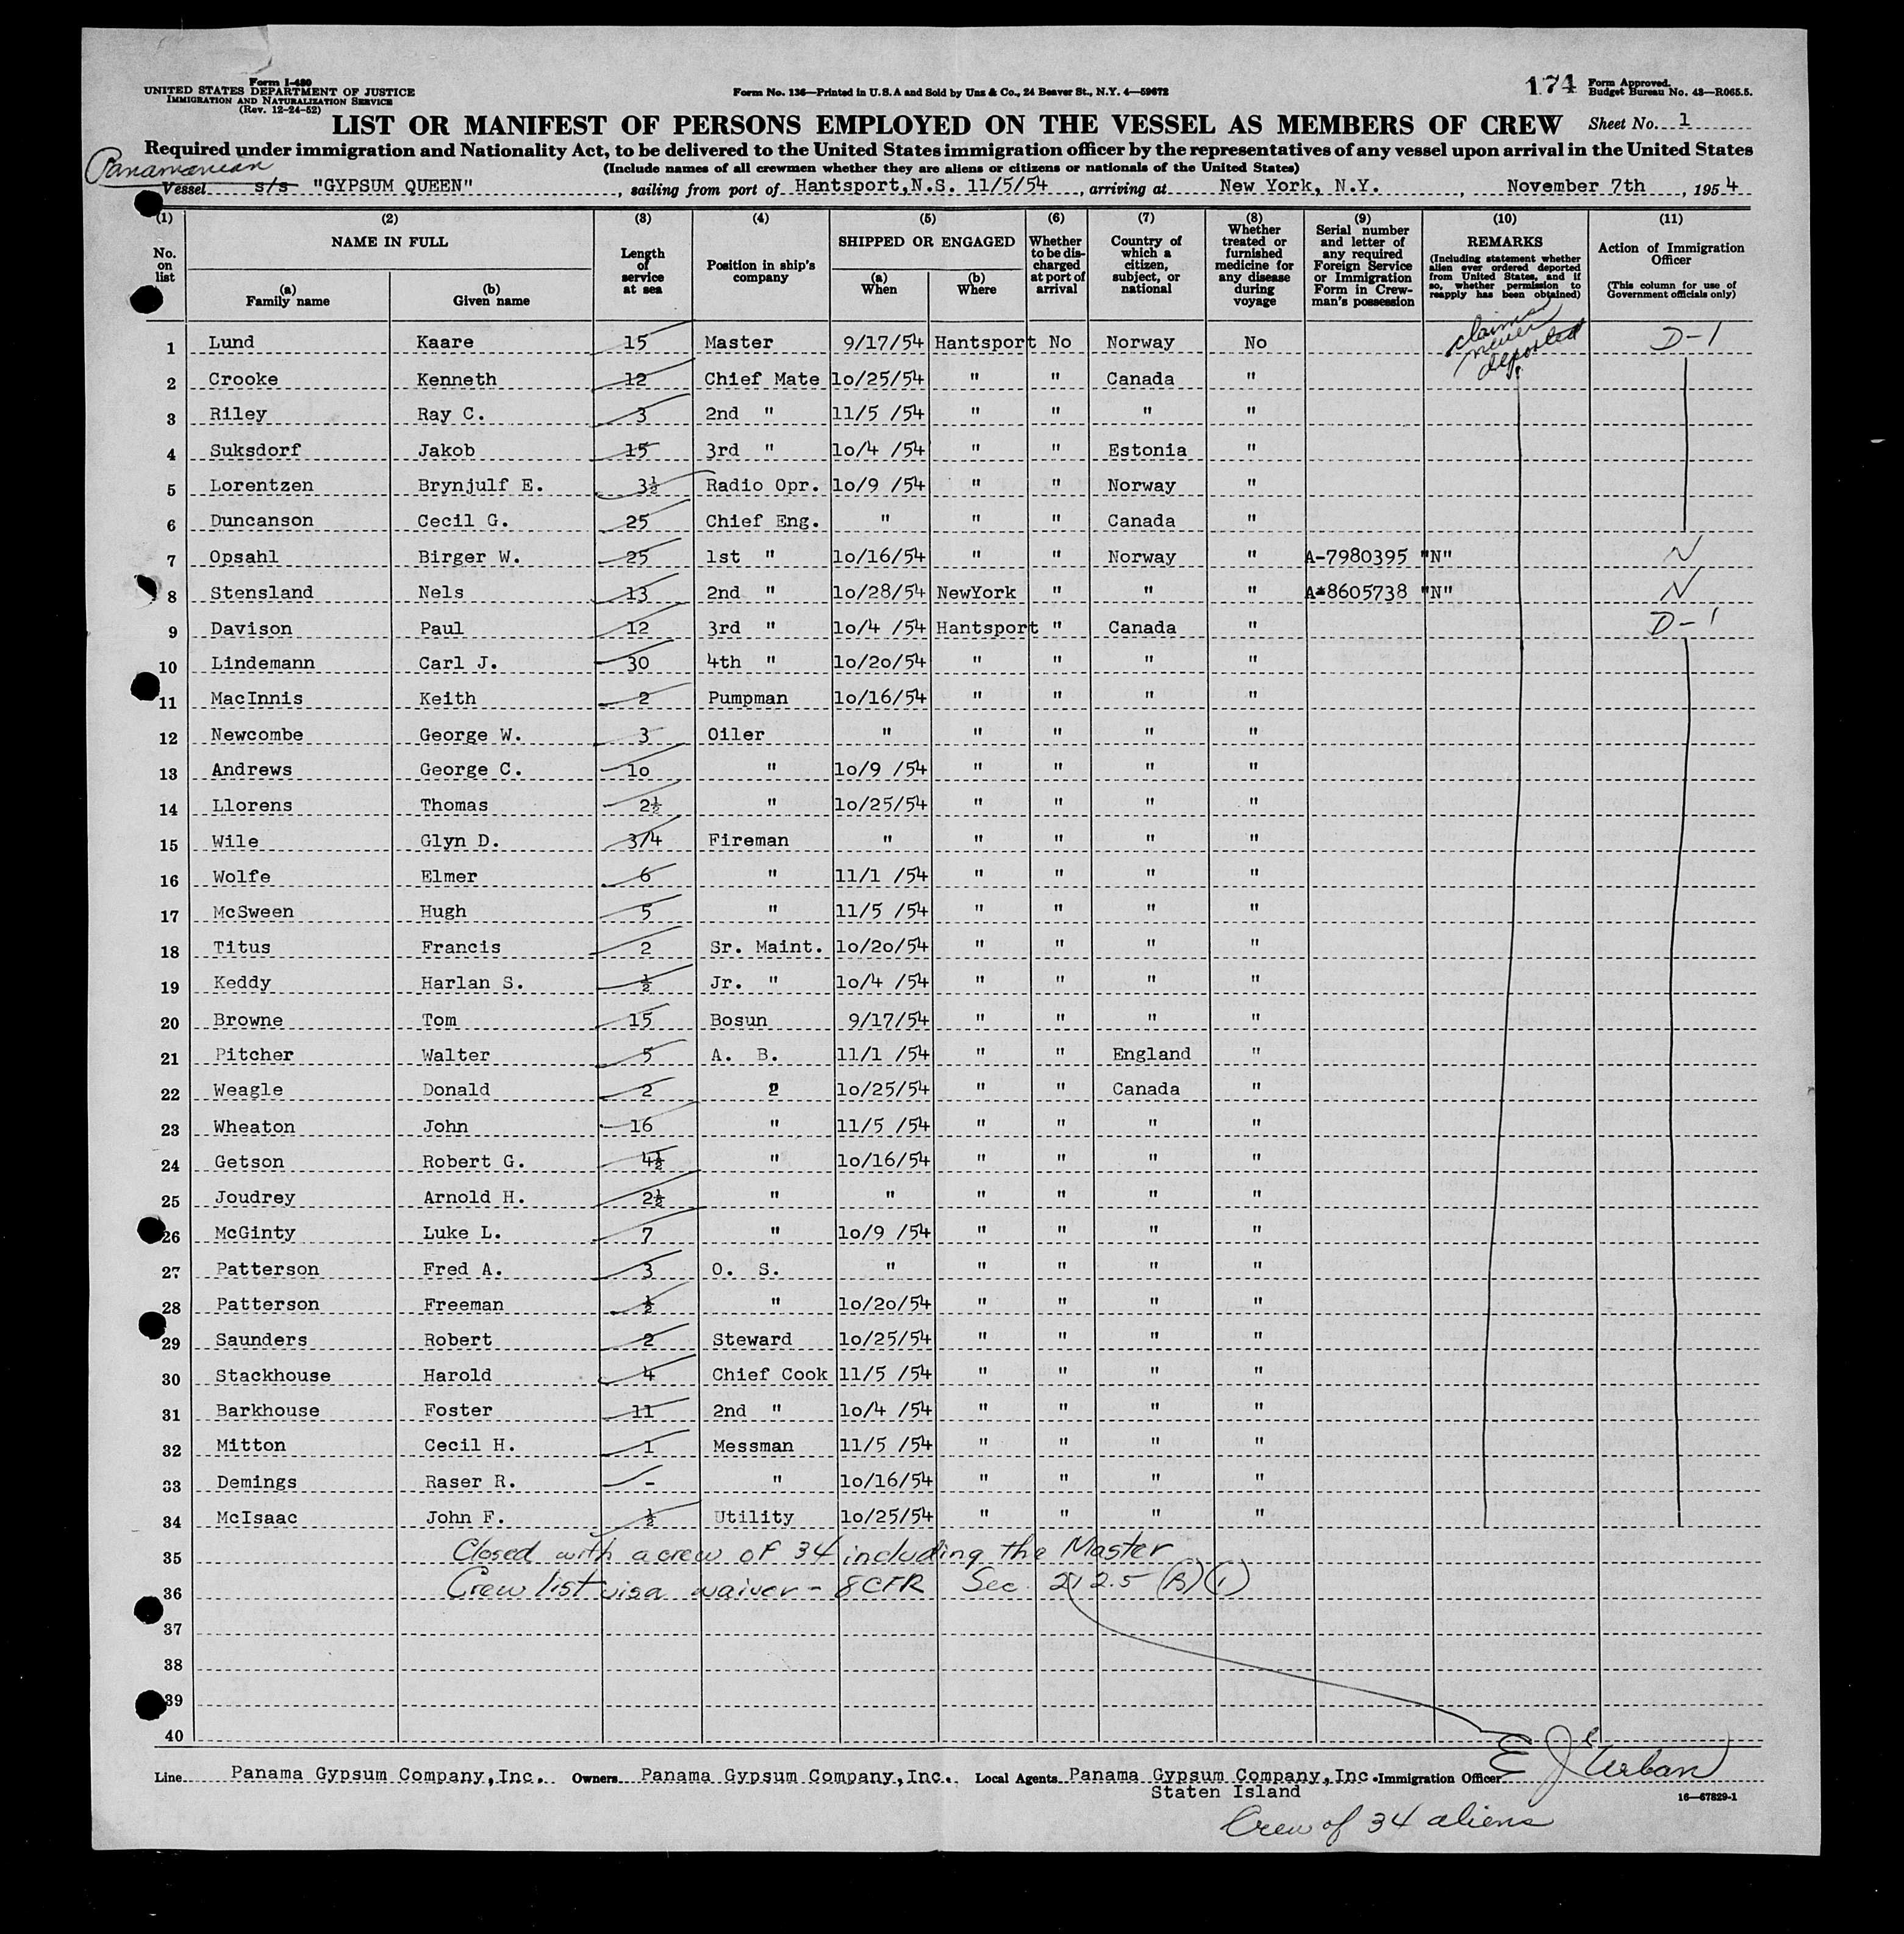 Form I-480
UNITED STATES DEPARTMENT OF JUSTICE
IMMIGRATION AND NATURALIZATION SERVICE
(Rev. 12-24-52)
Form No. 136—Printed in U.S.A and Sold by Unz & Co., 24 Beaver St., N.Y. 4—59672
174 Form Approved.
Budget Bureau No. 43—R065.5.
LIST OR MANIFEST OF PERSONS EMPLOYED ON THE VESSEL AS MEMBERS OF CREW Sheet No. 1
Required under immigration and Nationality Act, to be delivered to the United States immigration officer by the representatives of any vessel upon arrival in the United States
(Include names of all crewmen whether they are aliens or citizens or nationals of the United States)
Panamanian
Vessel s/s "GYPSUM QUEEN", sailing from port of Hantsport,N.S. 11/5/54, arriving at New York, N.Y., November 7th, 1954
(1) (2) (3) (4) (5) (6) (7) (8) (9) (10) (11)
No. on list
NAME IN FULL
(a) Family name
(b) Given name
Length of service at sea
Position in ship's company
SHIPPED OR ENGAGED
(a) When
(b) Where
Whether to be discharged at port of arrival
Country of which a citizen, subject, or national
Whether treated or furnished medicine for any disease during voyage
Serial number and letter of any required Foreign Service or Immigration Form in Crewman's possession
REMARKS
(Including statement whether alien ever ordered deported from United States, and if so, whether permission to reapply has been obtained)
Action of Immigration Officer
(This column for use of Government officials only)
claims never deported
1 Lund Kaare 15 Master 9/17/54 Hantsport No Norway No D-1
2 Crooke Kenneth 12 Chief Mate 10/25/54 " " Canada "
3 Riley Ray C. 3 2nd " 11/5 /54 " " " "
4 Suksdorf Jakob 15 3rd " 10/4 /54 " " Estonia "
5 Lorentzen Brynjulf E. 3½ Radio Opr. 10/9 /54 " " Norway "
6 Duncanson Cecil G. 25 Chief Eng. " " " Canada "
7 Opsahl Birger W. 25 1st " 10/16/54 " " Norway " A-7980395 "N" N
8 Stensland Nels 13 2nd " 10/28/54 NewYork " " " A*8605738 "N" N
9 Davison Paul 12 3rd " 10/4 /54 Hantsport " Canada " D-1
10 Lindemann Carl J. 30 4th " 10/20/54 " " " "
11 MacInnis Keith 2 Pumpman 10/16/54 " " " "
12 Newcombe George W. 3 Oiler " " " " "
13 Andrews George C. 10 " 10/9 /54 " " " "
14 Llorens Thomas 2½ " 10/25/54 " " " "
15 Wile Glyn D. 3/4 Fireman " " " " "
16 Wolfe Elmer 6 " 11/1 /54 " " " "
17 McSween Hugh 5 " 11/5 /54 " " " "
18 Titus Francis 2 Sr. Maint. 10/20/54 " " " "
19 Keddy Harlan S. ½ Jr. " 10/4 /54 " " " "
20 Browne Tom 15 Bosun 9/17/54 " " " "
21 Pitcher Walter 5 A. B. 11/1 /54 " " England "
22 Weagle Donald 2 " 10/25/54 " " Canada "
23 Wheaton John 16 " 11/5 /54 " " " "
24 Getson Robert G. 4½ " 10/16/54 " " " "
25 Joudrey Arnold H. 2½ " " " " " "
26 McGinty Luke L. 7 " 10/9 /54 " " " "
27 Patterson Fred A. 3 O. S. " " " " "
28 Patterson Freeman ½ " 10/20/54 " " " "
29 Saunders Robert 2 Steward 10/25/54 " " " "
30 Stackhouse Harold 4 Chief Cook 11/5 /54 " " " "
31 Barkhouse Foster 11 2nd " 10/4 /54 " " " "
32 Mitton Cecil H. 1 Messman 11/5 /54 " " " "
33 Demings Raser R. - " 10/16/54 " " " "
34 McIsaac John F. ½ Utility 10/25/54 " " " "
35 Closed with a crew of 34 including the Master
36 Crew list visa waiver - 8CFR Sec. 212.5 (B)(1)
37
38
39
40
Line Panama Gypsum Company,Inc. Owners Panama Gypsum Company,Inc. Local Agents Panama Gypsum Company,Inc. Immigration Officer E J Urban
Staten Island
16—67829-1
Crew of 34 aliens